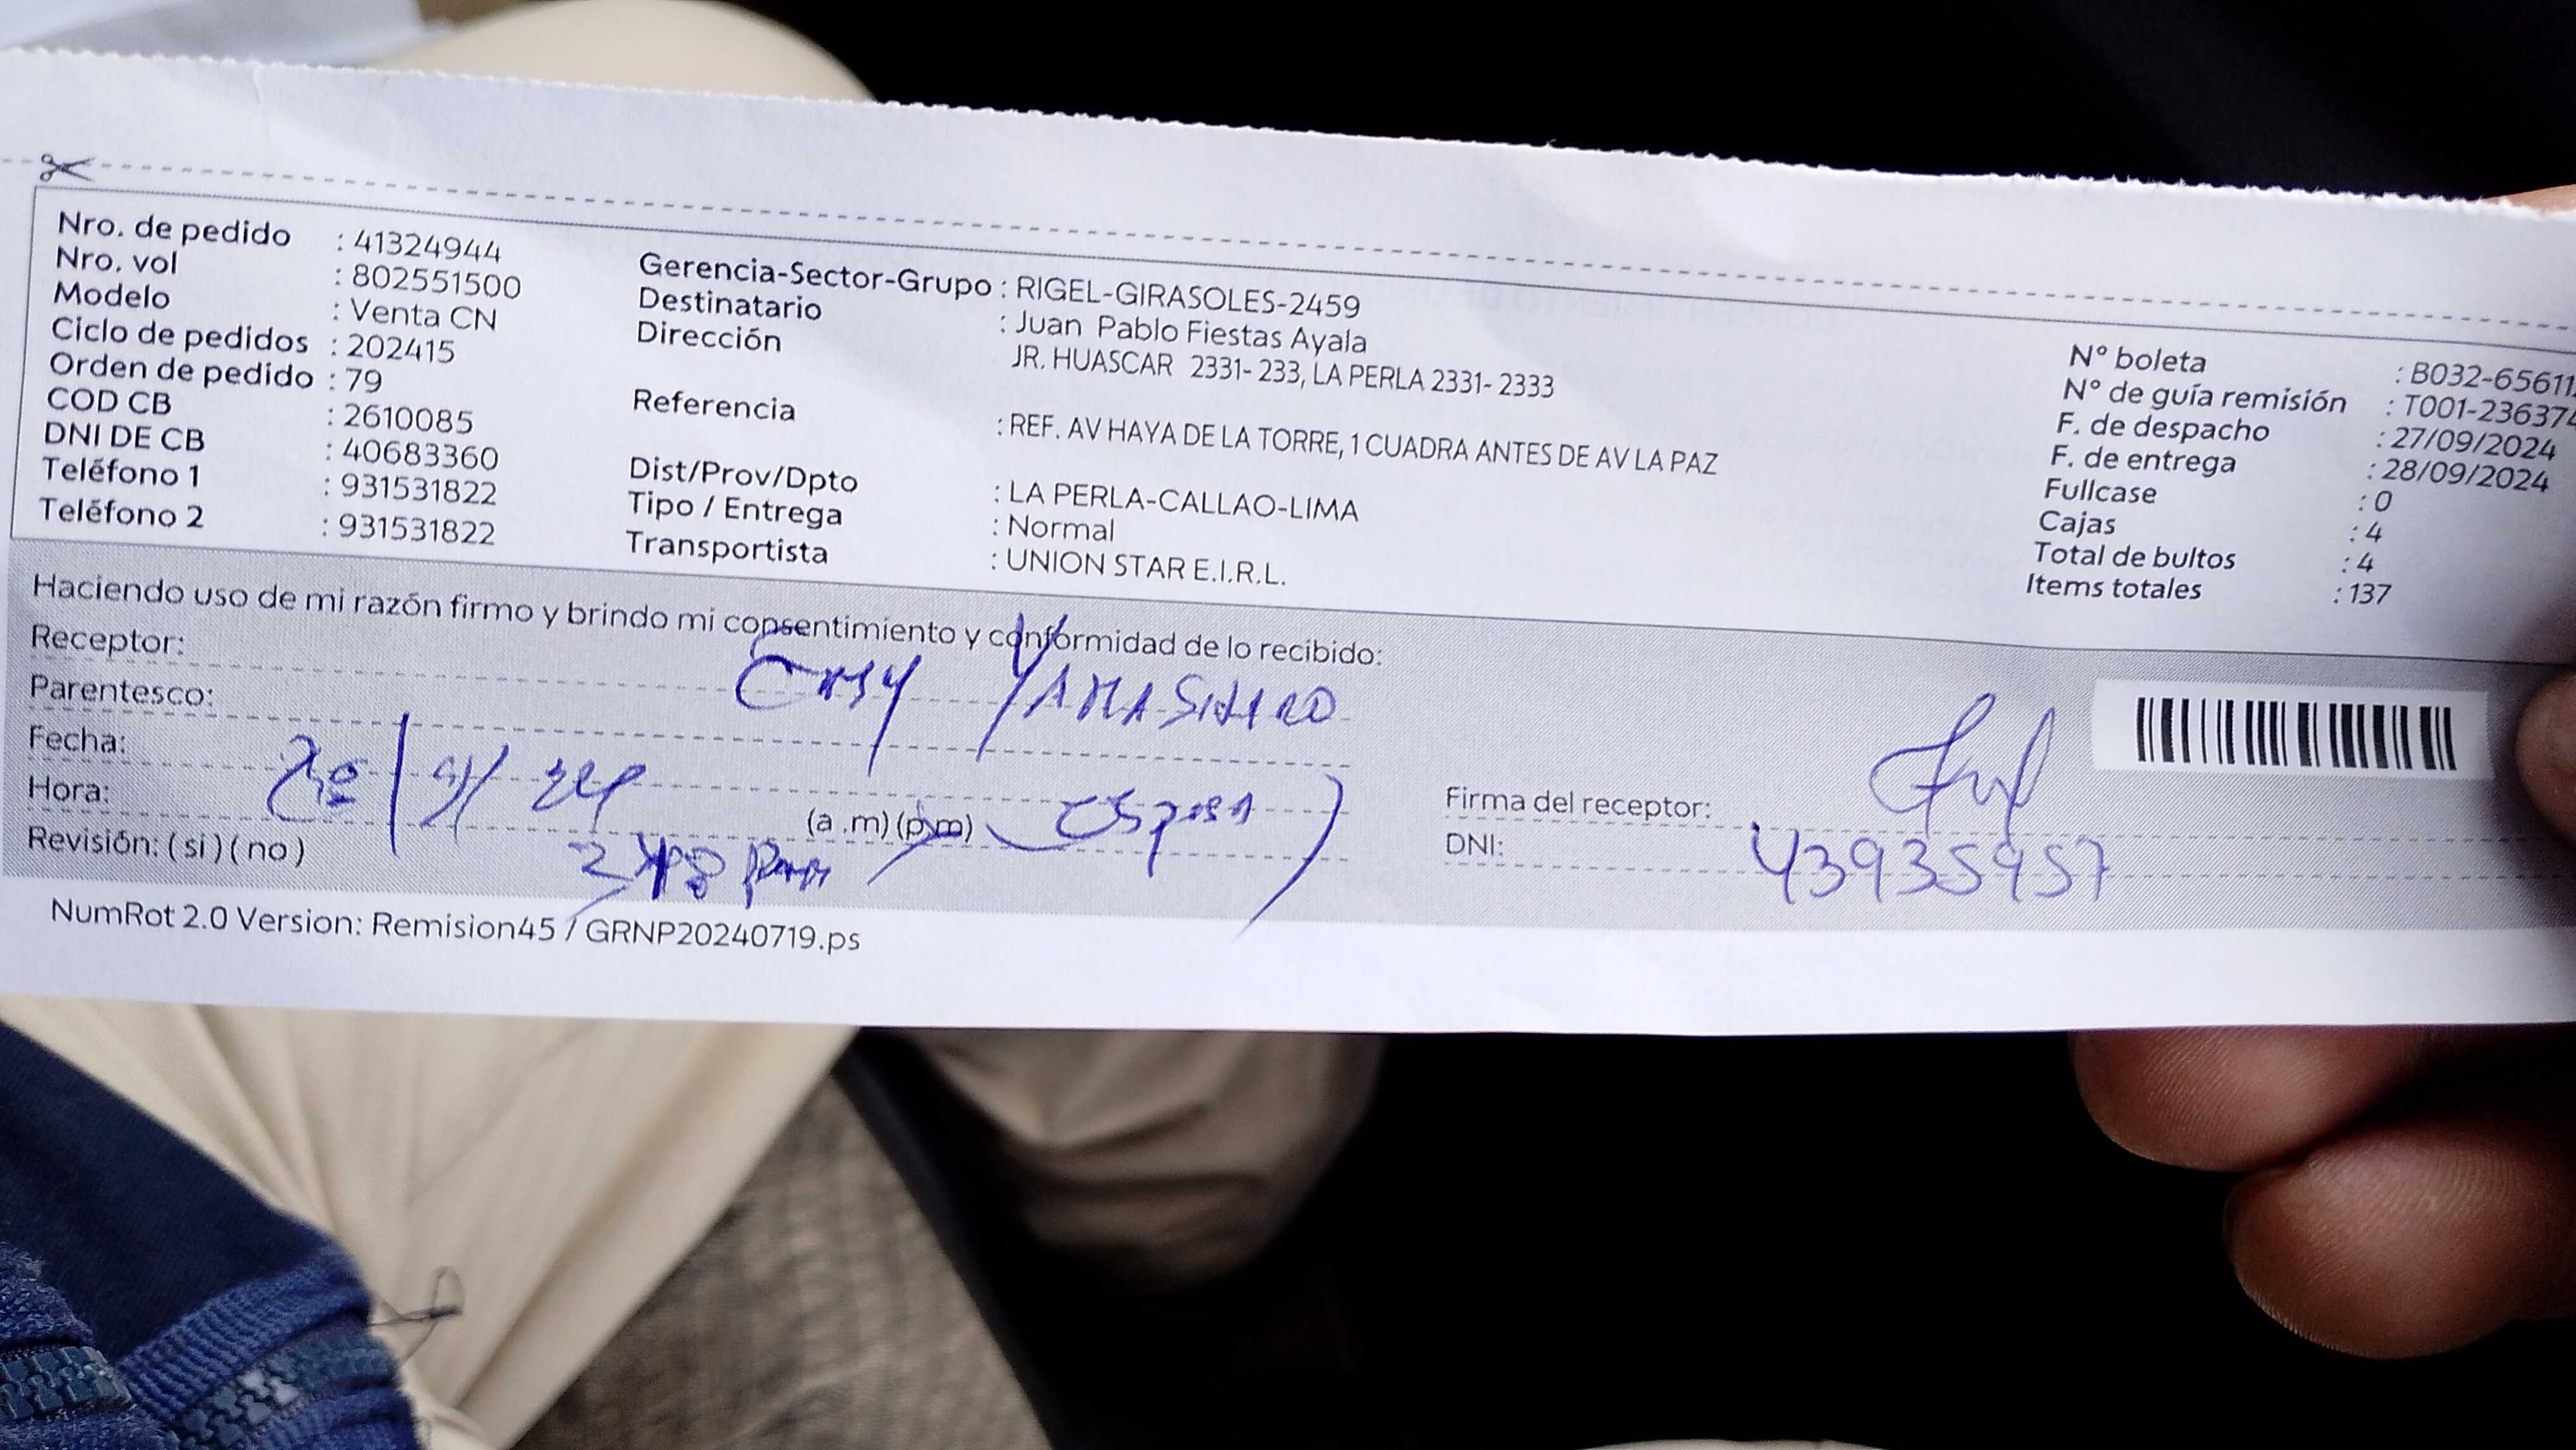 Nro. de pedido : 41324944
Nro. vol : 802551500
Modelo : Venta CN
Ciclo de pedidos : 202415
Orden de pedido : 79
COD CB : 2610085
DNI DE CB : 40683360
Teléfono 1 : 931531822
Teléfono 2 : 931531822
Gerencia-Sector-Grupo : RIGEL-GIRASOLES-2459
Destinatario : Juan Pablo Fiestas Ayala
Dirección JR. HUASCAR 2331- 233, LA PERLA 2331- 2333
Referencia : REF. AV HAYA DE LA TORRE, 1 CUADRA ANTES DE AV LA PAZ
Dist/Prov/Dpto : LA PERLA-CALLAO-LIMA
Tipo / Entrega : Normal
Transportista : UNION STAR E.I.R.L.
N° boleta : B032-65611
N° de guía remisión : T001-236374
F. de despacho : 27/09/2024
F. de entrega : 28/09/2024
Fullcase : 0
Cajas : 4
Total de bultos : 4
Items totales : 137
Haciendo uso de mi razón firmo y brindo mi consentimiento y conformidad de lo recibido:
Receptor: YAMASHIRO
Parentesco:
Fecha:
Hora: (a .m) (p.m)
Revisión: ( si ) ( no )
Firma del receptor:
DNI: 43935957
NumRot 2.0 Version: Remision45 / GRNP20240719.ps